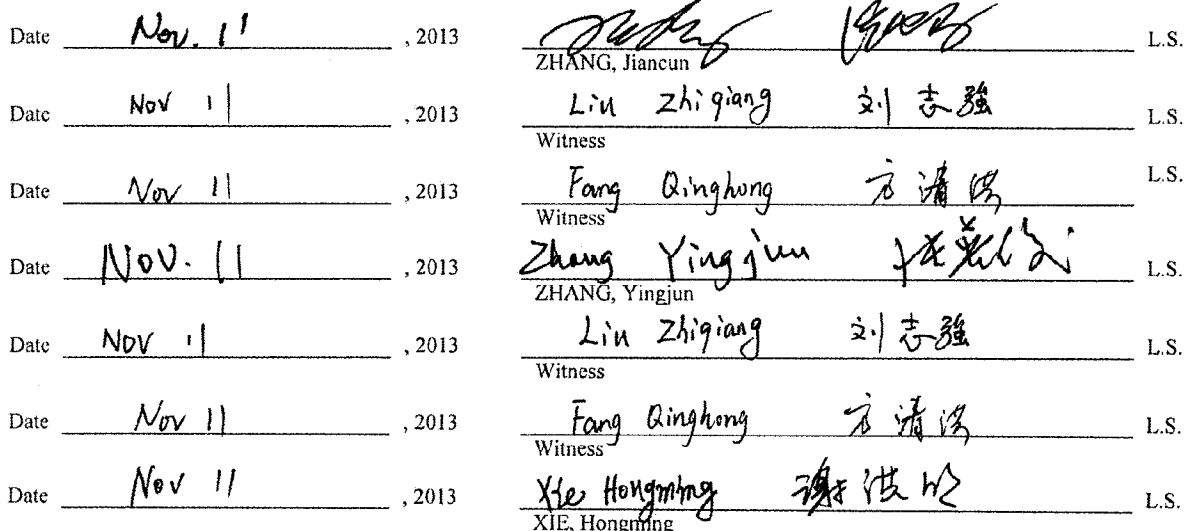 Date Nov. 11, 2013 L.S.
ZHANG, Jiancun
Date Nov 11, 2013 Liu Zhiqiang 刘志强 L.S.
Witness
Date Nov 11, 2013 Fang Qinghong 方清洪 L.S.
Witness
Date Nov. 11, 2013 Zhang Yingjun 张英俊 L.S.
ZHANG, Yingjun
Date Nov 11, 2013 Liu Zhiqiang 刘志强 L.S.
Witness
Date Nov 11, 2013 Fang Qinghong 方清洪 L.S.
Witness
Date Nov 11, 2013 Xie Hongming 谢洪明 L.S.
XIE, Hongming